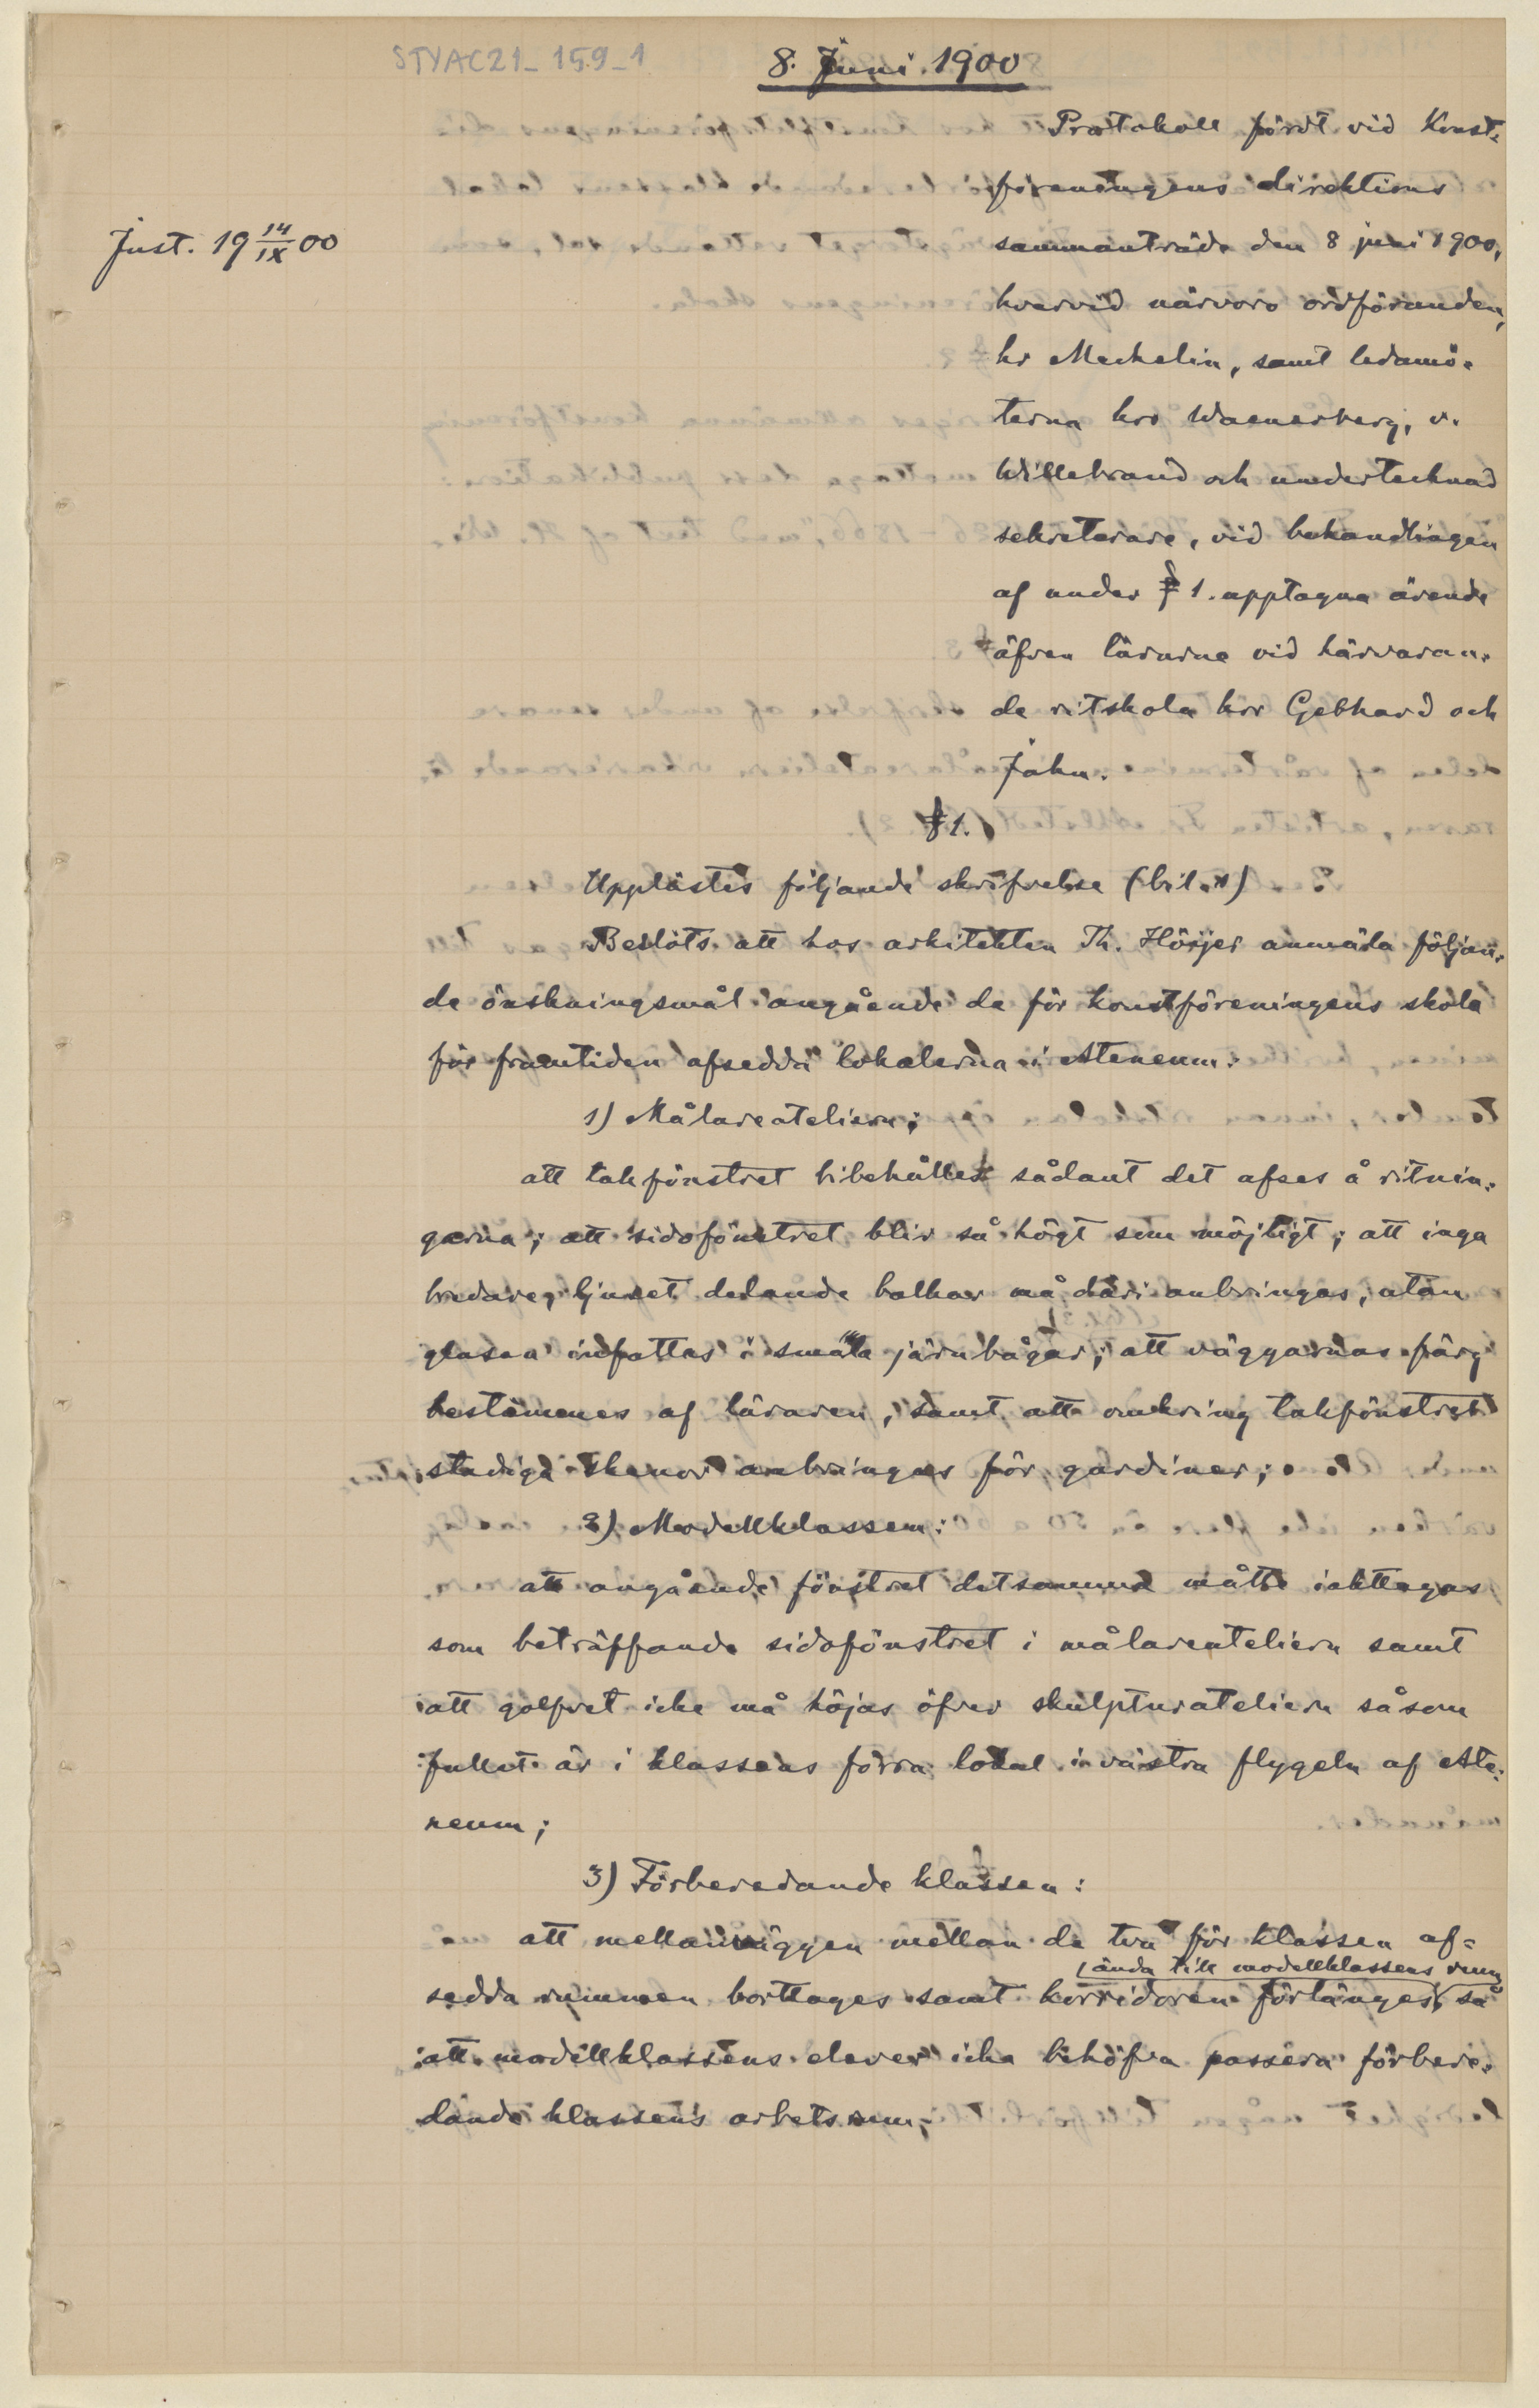 STYAC21_159_1
8. Juni 1900
Protokoll fördt vid Konst-
föreningens direktions
Just. 19 14/IX 00
sammanträde den 8 juni 1900,
hvarvid närvoro ordföranden,
hr Mechelin, samt ledamö-
terna hrr Waenerberg, v.
Willebrand och undertecknad
sekreterare, vid behandlingen
af under § 1. upptagna ärende
äfven lärarne vid härvaran-
de ritskola hrr Gebhard och
Jahn.
§ 1.
Upplästes följande skrifvelse (bil. 1)
Beslöts att hos arkitekten Th. Höijer anmäla följan-
de önskningsmål angående de för konstföreningens skola
för framtiden afsedda lokalerna i Ateneum:
1) Målareateliern:
att takfönstret bibehålles sådant det afses å ritnin-
garna; att sidofönstret blir så högt som möjligt; att inga
bredare, ljuset delande balkar må däri anbringas, utan
glasen infattas i smala järnbågar; att väggarnas färg
bestämmes af läraren, samt att omkring takfönstret
stadiga skenor anbringas för gardiner;
2) Modellklassen:
att angående fönstret detsamma måtte iakttagas
som beträffande sidofönstret i målareateliern samt
att golfvet icke må höjas öfver skulpturateliern såsom
fallet är i klassens förra lokal i västra flygeln af Ate-
neum;
3) Förberedande klassen:
att mellanväggen mellan de två för klassen af-
ända till modellklassens rum,
sedda rummen borttages samt korridoren förlänges så
att modellklassens elever icke behöfva passera förbere-
dande klassens arbetsrum;